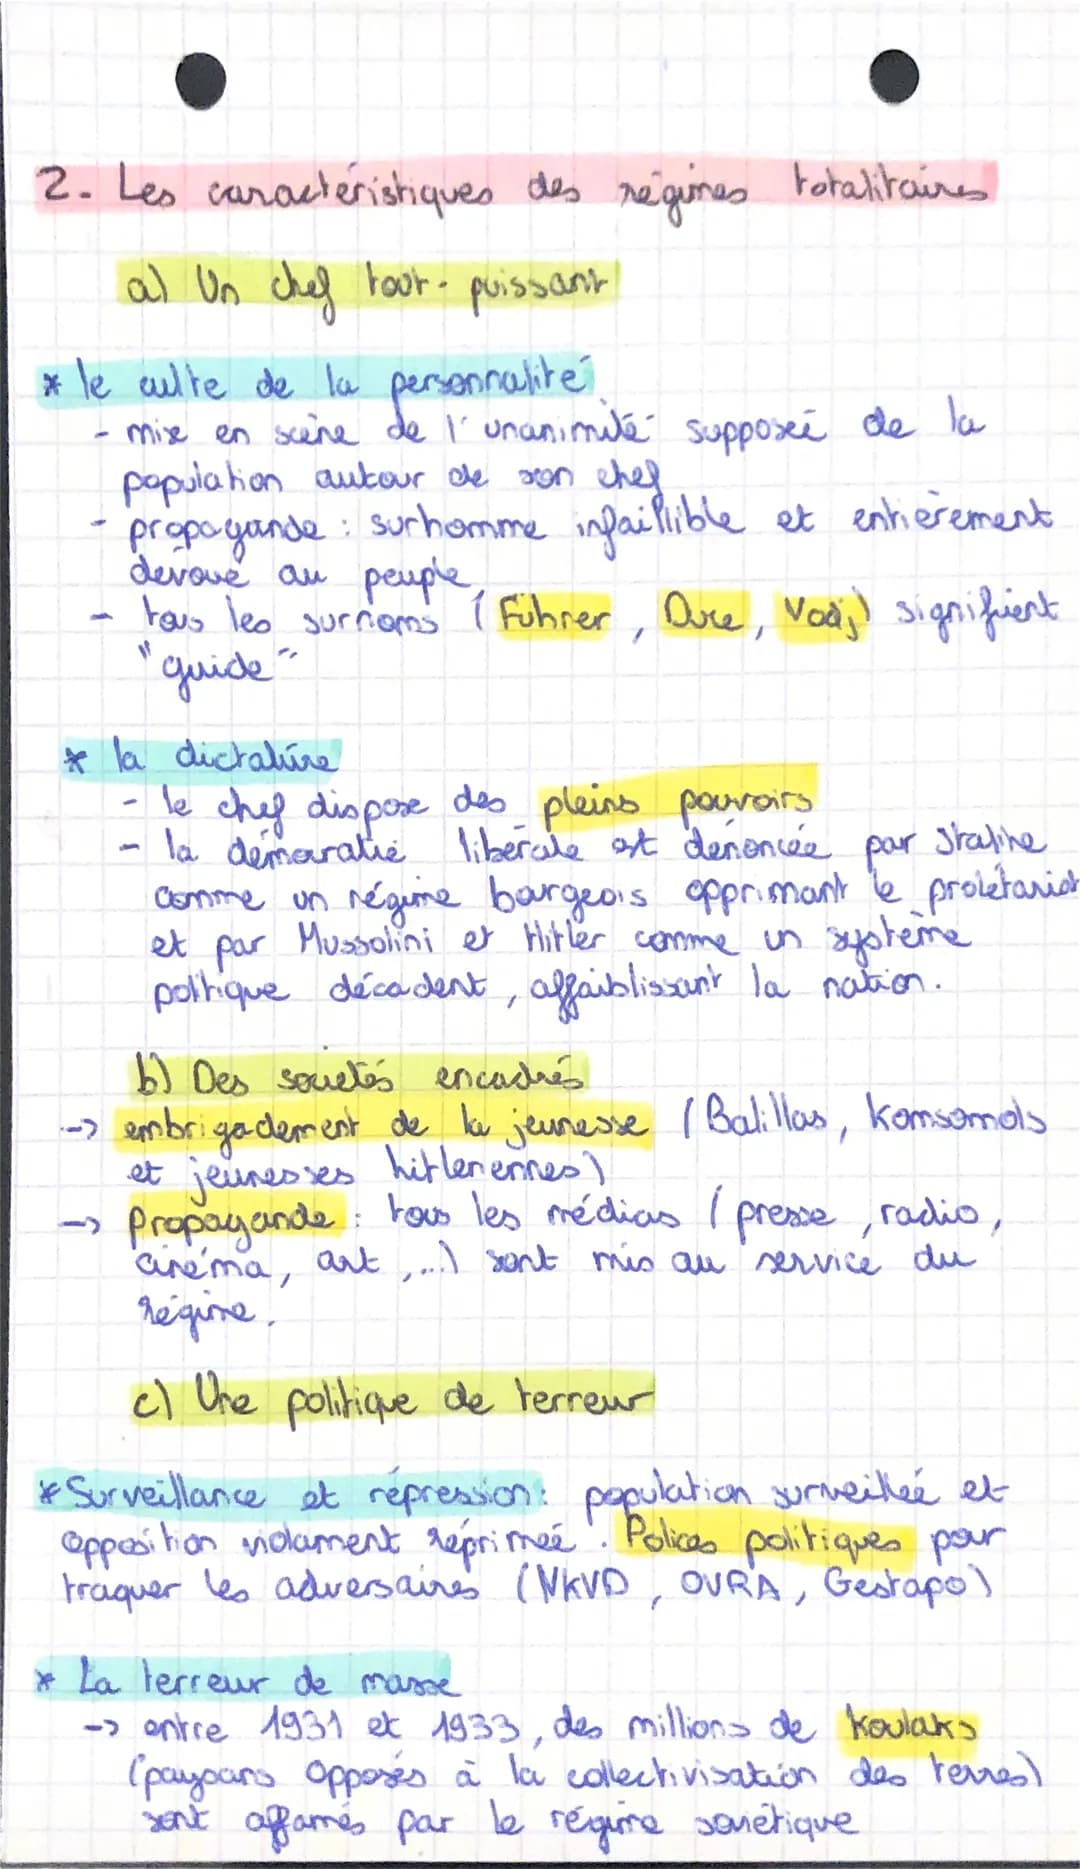 2- Les caractéristiques des régimes totalitaires
a) Un chef tout-puissant
* le culte de la personnalité
- mise en scène de l'unanimité supposée de la
population autour de son chef
- propagande : surhomme infaillible et entièrement
dévoué au peuple
- tous les surnoms (Führer, Duce, Vodj) signifient
"guide"
* la dictature
- le chef dispose des pleins pouvoirs
- la démocratie libérale est dénoncée par Staline
comme un régime bourgeois opprimant le prolétariat
et par Mussolini et Hitler comme un système
politique décadent, affaiblissant la nation.
b) Des sociétés encadrés
-> embrigadement de la jeunesse (Balillas, Komsomols
et jeunesses hitlerennes)
-> Propagande : tous les médias (presse, radio,
cinéma, art,...) sont mis au service du
régime.
c) Une politique de terreur
* Surveillance et répression : population surveillée et
opposition violament réprimée. Polices politiques pour
traquer les adversaires (NKVD, OVRA, Gestapo)
* La terreur de masse
-> entre 1931 et 1933, des millions de Koulaks
(paysans opposés à la collectivisation des terres)
sont affamés par le régime soviétique